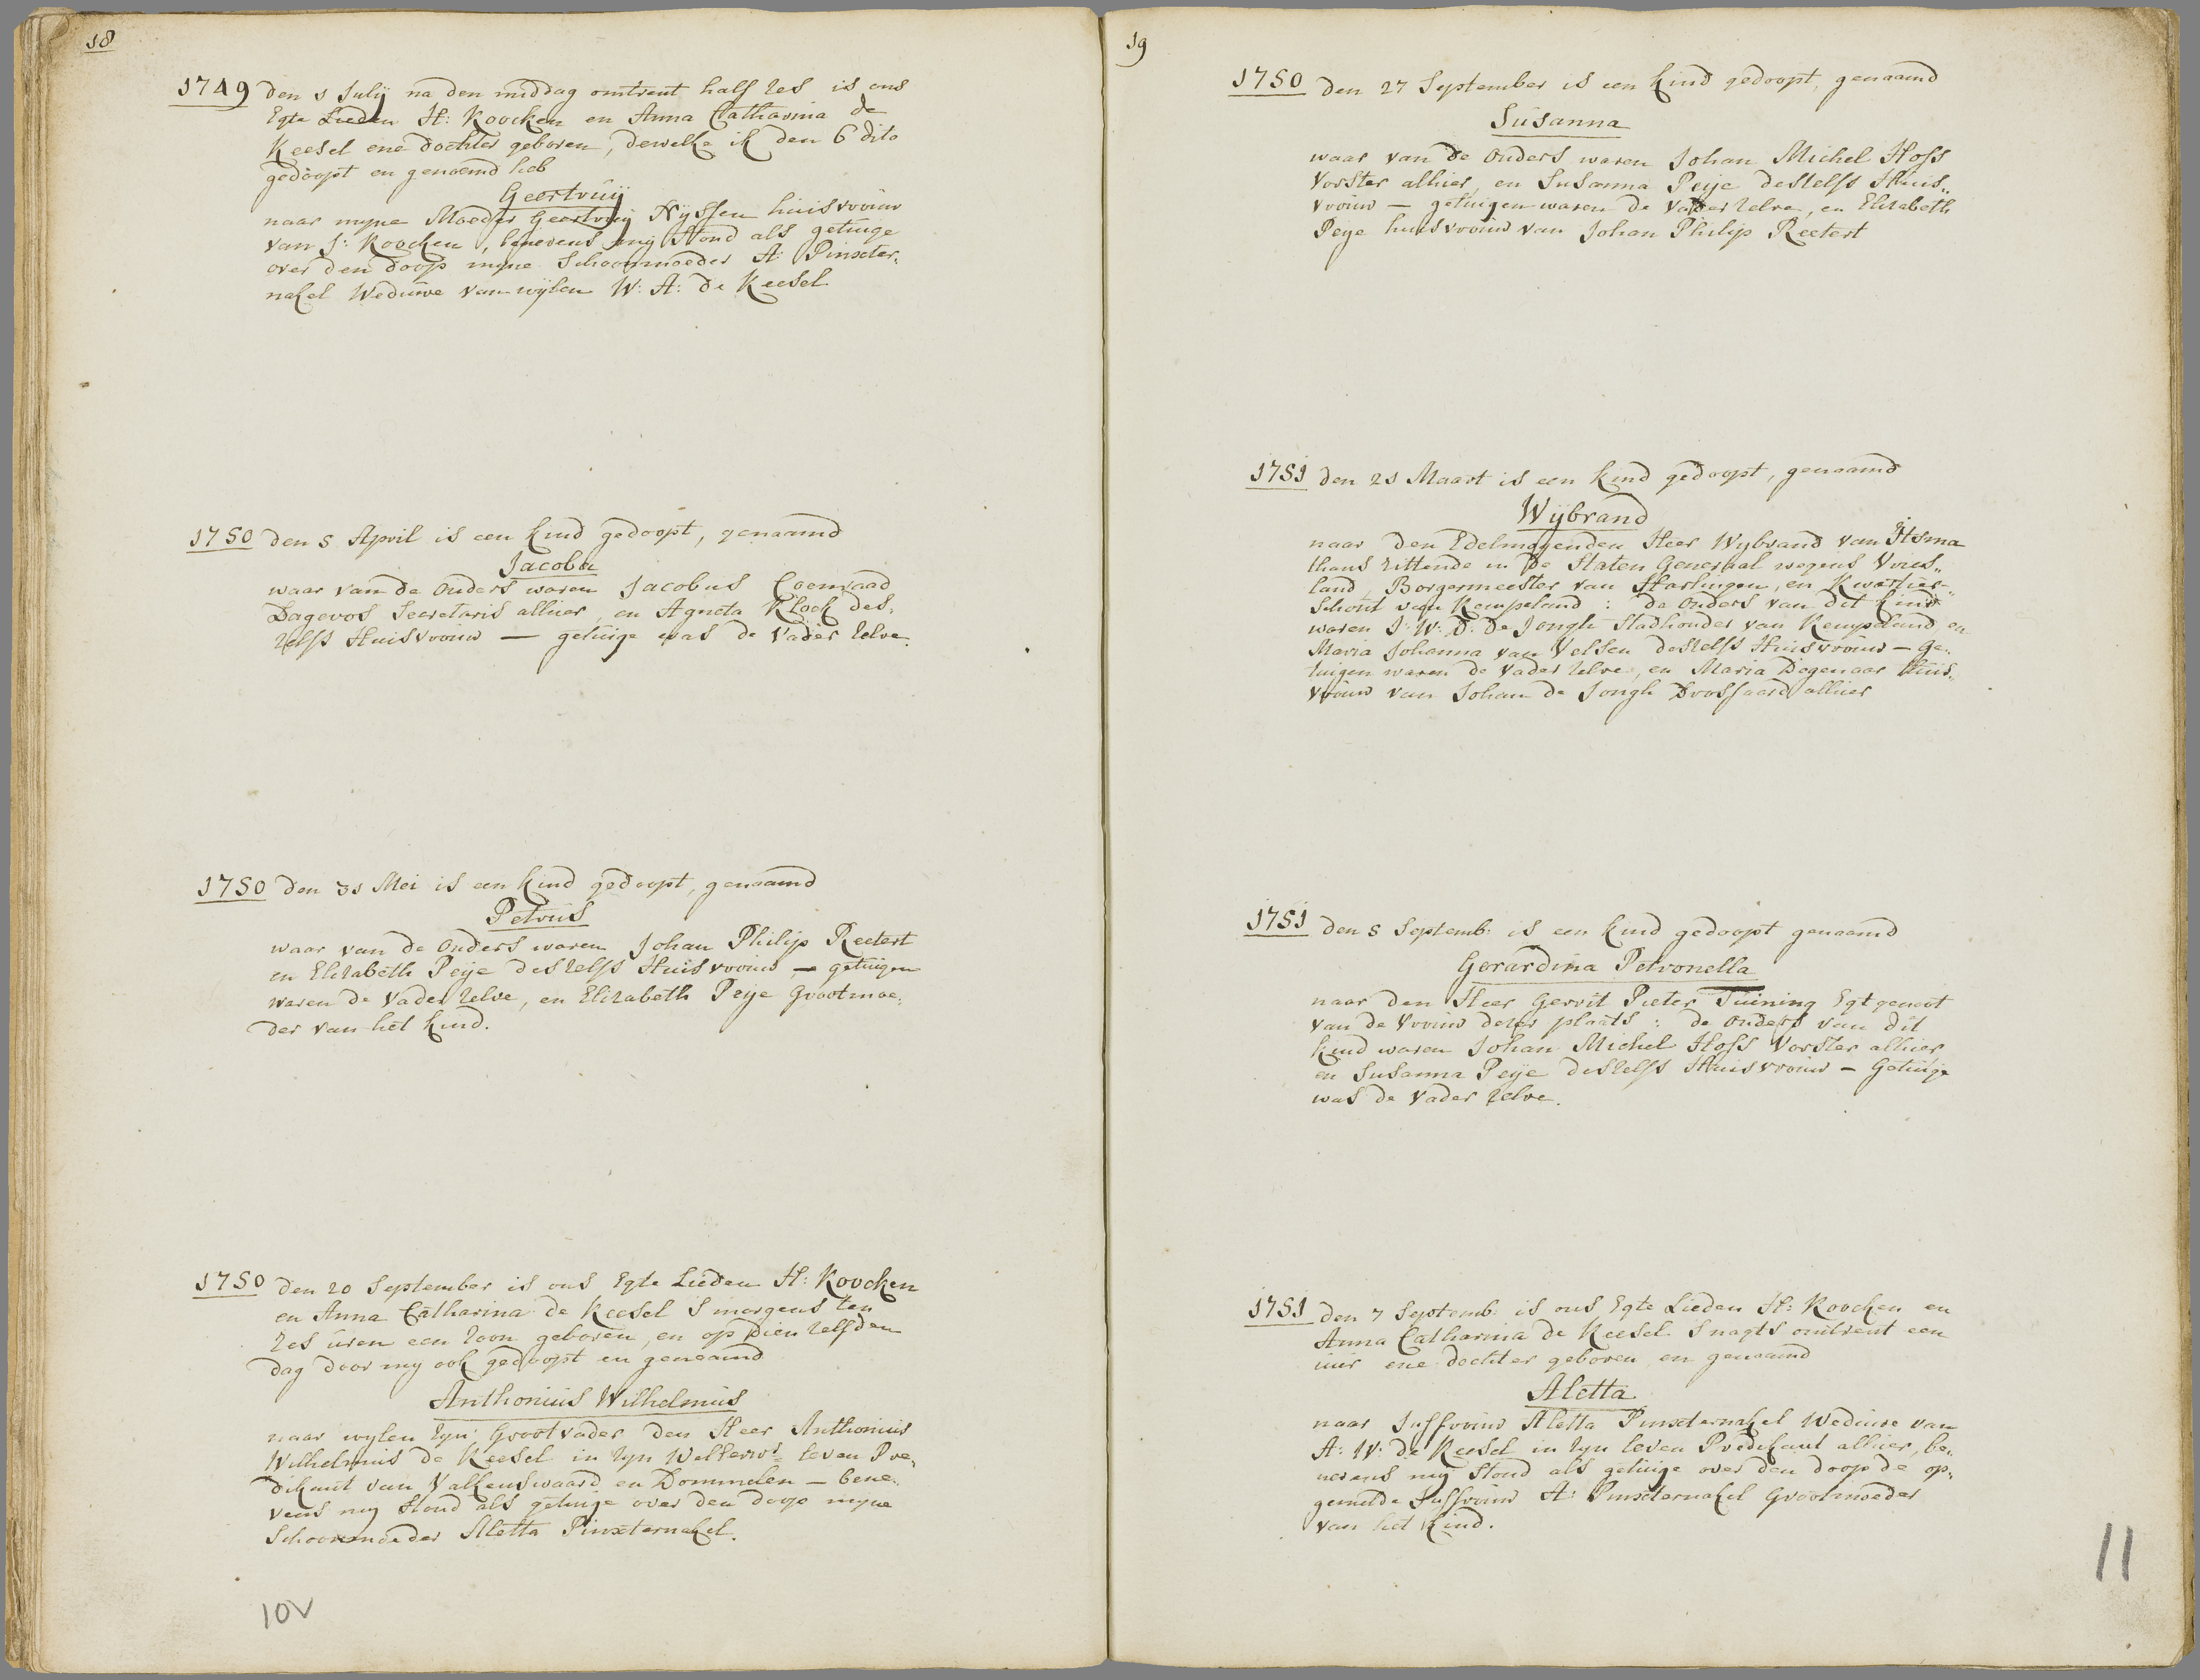 18
1749 den 1 Julij na den middag omtrent half zes is ons
Egte Lieden H: Koocken en Anna Catharina de
Keesel ene dochter geboren, dewelke ik den 6 dito
gedoopt en genoemd heb
Geertruij
naar myne Moeder Geertruij Nijssen huisvrouw
van J: Koocken, benevens mij stond als getuige
over den doop myne Schoonmoeder A: Pinxter,
nakel Weduwe van wijlen W: A: de Keesel
1750 den 5 April is een kind gedoopt, genaamd
Jacoba
waar van de Ouders waren Jacobus Coenraad
Dagevos Secretaris alhier, en Agneta Klock des,
zelfs Huisvrouw — getuige was de Vader zelve.
1750 den 31 Mei is een kind gedoopt, genaamd
Petrus
waar van de Ouders waren Johan Philip Reetert
en Elizabeth Peije deszelfs Huisvrouw — getuigen
waren de Vader zelve, en Elizabeth Peye Grootmoe,
der van het kind.
1750 den 20 September is ons Egte Lieden H: Koocken
en Anna Catharina de Keesel s morgens ten
zes uren een zoon geboren, en op dien zelfden
dag door my ook gedoopt en genaamd
Anthonius Wilhelmus
naar wylen zyn Grootvader den Heer Anthonius
Wilhelmus de Keesel in zyn Welleerw: leven Pre,
dikant van Valkenswaard en Dommelen — bene,
vens my stond als getuige over den doop myne
Schoonmoeder Aletta Pinxternakel.
10V
19
1750 den 27 September is een kind gedoopt, genaamd
Susanna
waar van de Ouders waren Johan Michel Hoss
Vorster alhier, en Susanna Peije deszelfs Huis,,
vrouw — getuigen waren de Vader zelve, en Elizabeth
Peye huisvrouw van Johan Philip Reetert
1751 den 21 Maart is een kind gedoopt, genaamd
Wijbrand
naar den Edelmogenden Heer Wybrand van Itsma
thans zittende in de Staten Generaal wegens Vries,,
land, Borgermeester van Harlingen, en Kwartier,,
Schout van Kempeland : de Ouders van dit kind
waren J: W: D: de Jongh Stadhouder van Kempeland en
Maria Johanna van Velsen deszelfs Huisvrouw — Ge,,
tuigen waren de Vader zelve, en Maria Degenaar Huis,,
vrouw van Johan de Jongh Drossaard alhier
1751 den 5 Septemb: is een kind gedoopt genaamd
Gerardina Petronella
naar den Heer Gerrit Pieter Tuining Egtgenoot
van de Vrouw dezer plaats : de Ouders van dit
kind waren Johan Michel Hoss Vorster alhier
en Susanna Peije deszelfs Huisvrouw — Getuige
was de Vader zelve.
1751 den 7 Septemb: is ons Egte Lieden H: Koocken en
Anna Catharina de Keesel s nagts omtrent een
uur ene dochter geboren en genaamd
Aletta
naar Juffrouw Aletta Pinxternakel Weduwe van
A: W: de Keesel in zyn leven Predikant alhier, be,
nevens my stond als getuige over den doop de op,
gemelde Juffrouw A: Pinxternakel Grootmoeder
van het kind.
11